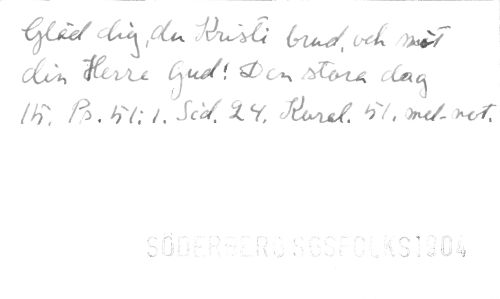 Gläd dig, du Kristi brud, och möt
din Herre Gud! Den stora dag
15. Ps. 51:1. Sid. 24. Koral. 51. mel-not.
SÖDERBERG SGSFOLKS1904